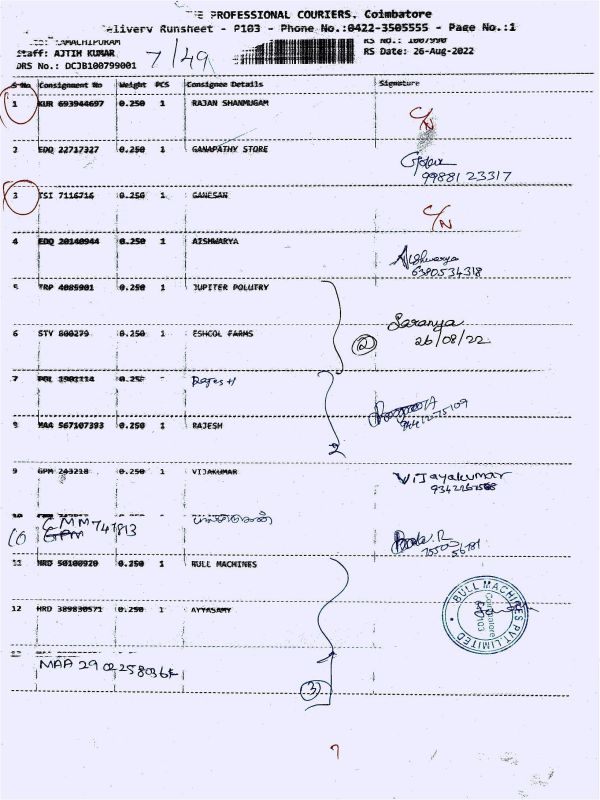 THE PROFESSIONAL COURIERS. Coimbatore
Delivery Runsheet - P103 - Phone No.:0422-3505555 - Page No.:1
RS No.: 1007990
Staff: AJITH KUMAR 7/49 RS Date: 26-Aug-2022
DRS No.: DCJB100799001
S No Consignment No Weight PCS Consignee Details Signature
1 KUR 693944697 0.250 1 RAJAN SHANMUGAM C/N
2 EDQ 22717327 0.250 1 GANAPATHY STORE
99881 23317
3 TSI 7116716 0.250 1 GANESAN C/N
4 EDQ 20140944 0.250 1 AISHWARYA Aishwarya
6380534318
5 TRP 4085901 0.250 1 JUPITER POLUTRY
6 STY 800279 0.250 1 ESHCOL FARMS 2 Saranya
26/08/22
7 POL 1902114 0.250 - Rajesh
8 MAA 567107393 0.250 1 RAJESH 2
9 GPM 243218 0.250 1 VIJAKUMAR Vijayakumar
10 CMM 747813
11 HRD 50100920 0.250 1 BULL MACHINES
12 HRD 389830571 0.250 1 AYYASAMY
BULL MACHINES PVT. LIMITED
Coimbatore
MAA 290225803
3
7